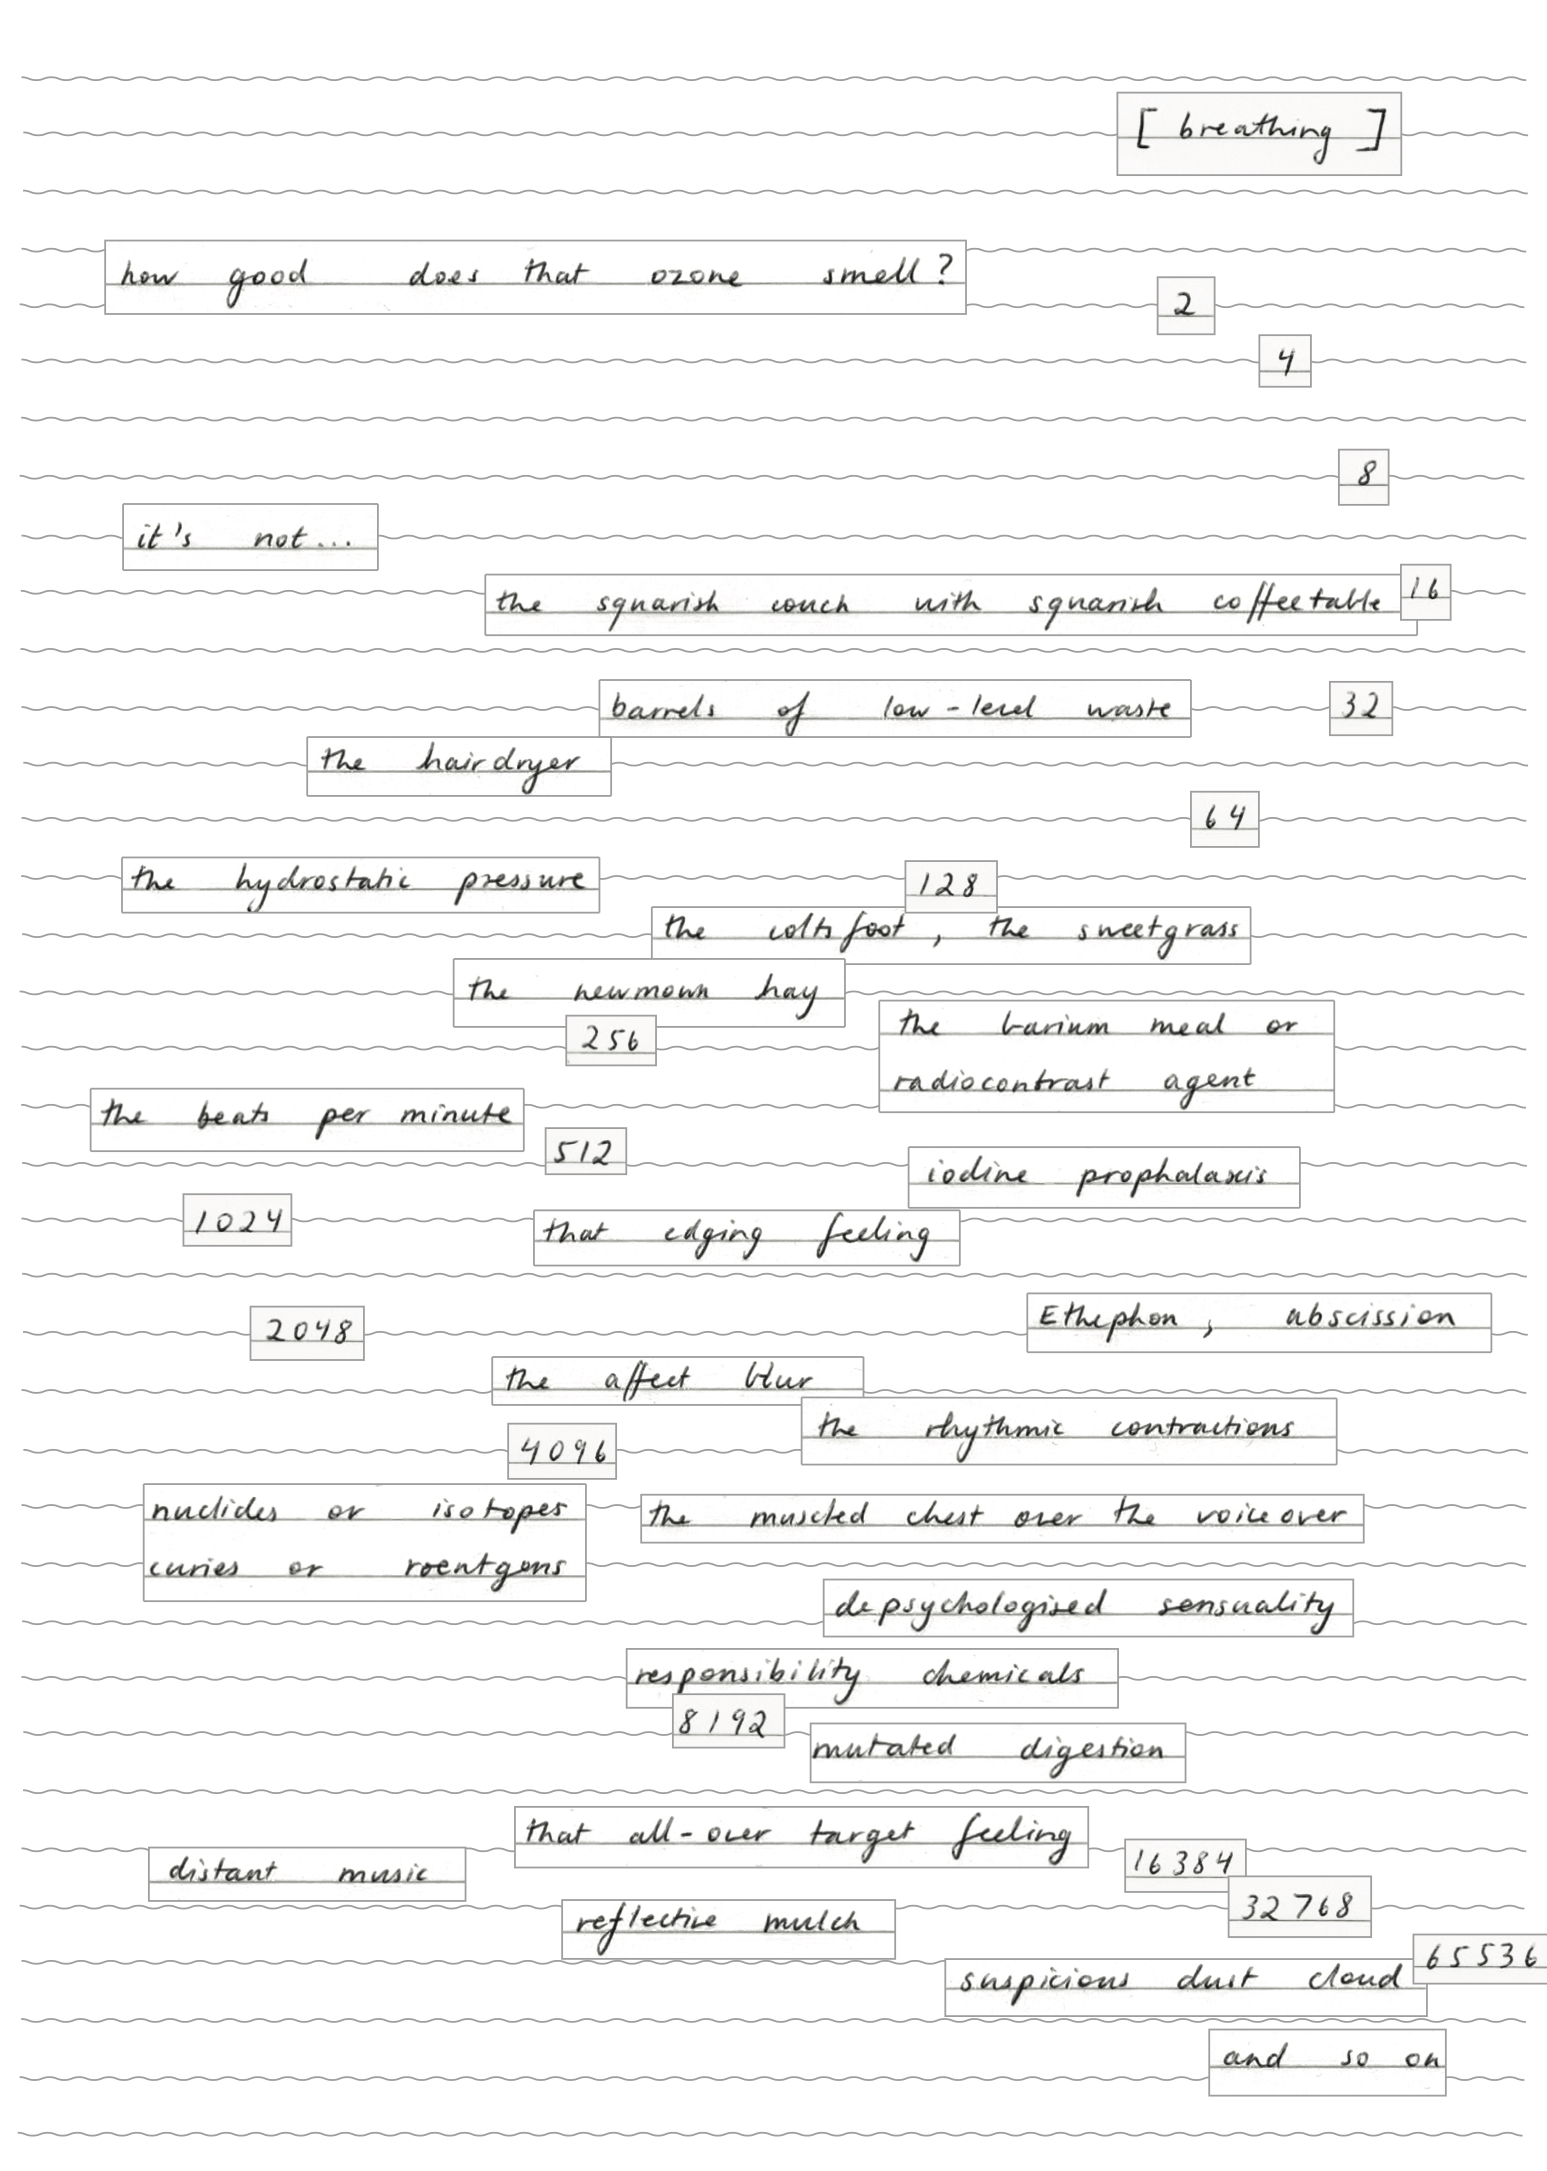 [ breathing ]
how good does that ozone smell?
2
4
8
it's not...
the squarish couch with squarish coffeetable
16
barrels of low-level waste
32
the hairdryer
64
the hydrostatic pressure
128
the coltsfoot, the sweetgrass
the newmown hay
256
the barium meal or
radiocontrast agent
the beats per minute
512
iodine prophalaxis
1024
that edging feeling
2048
Ethephon, abscission
the affect blur
the rhythmic contractions
4096
nuclides or isotopes
curies or roentgens
the muscled chest over the voiceover
depsychologised sensuality
responsibility chemicals
8192
mutated digestion
that all-over target feeling
16384
distant music
32768
reflective mulch
65536
suspicious dust cloud
and so on